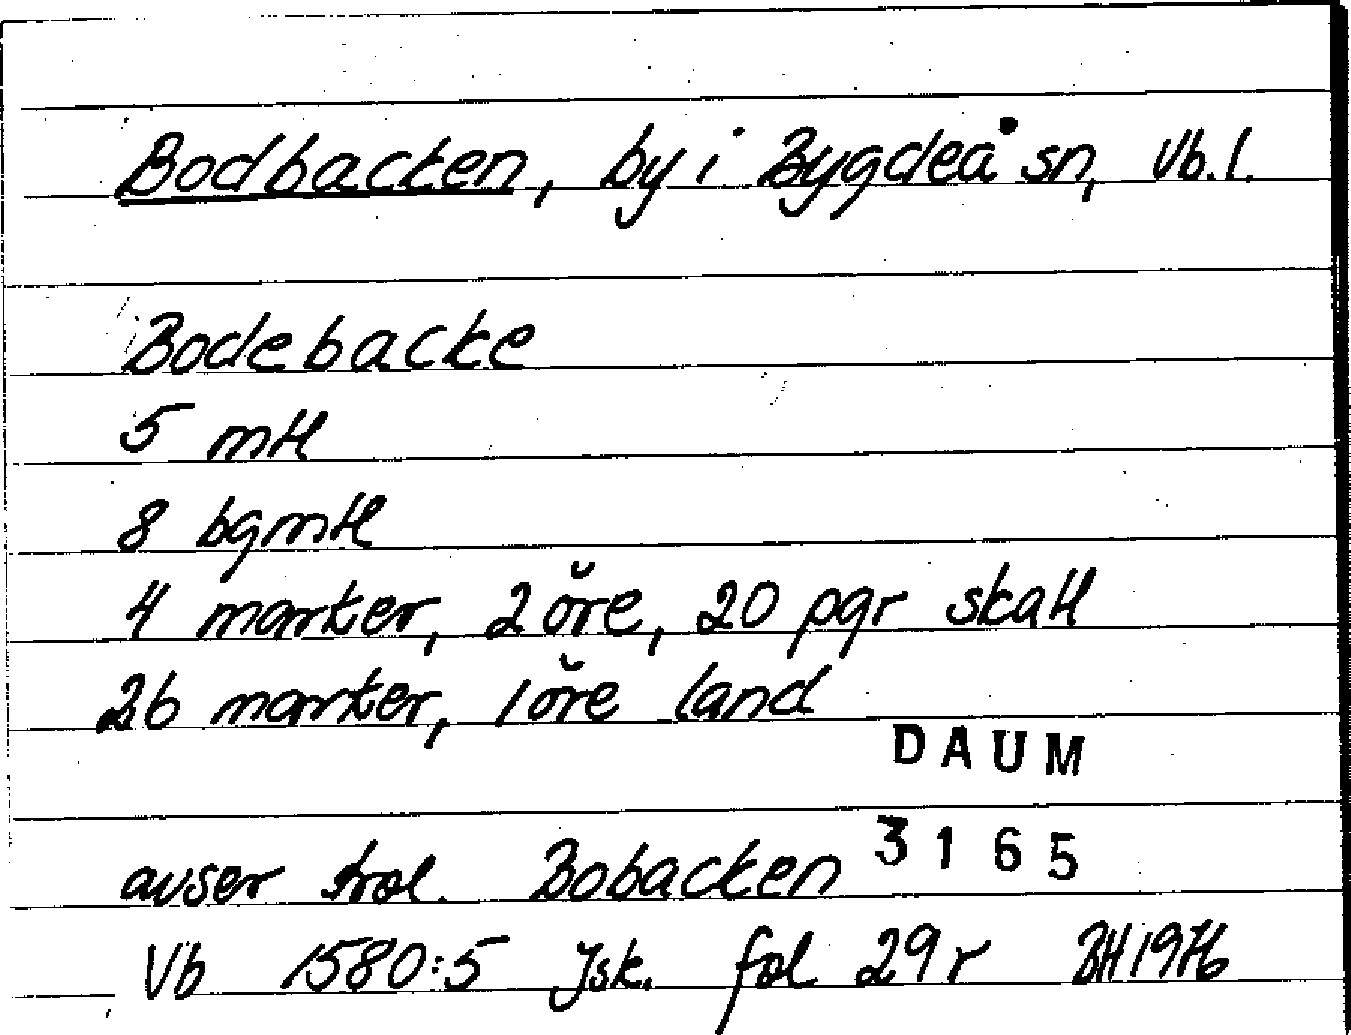 Bodbacken, by i Bygdeå sn, Vb. l.
Bodebacke
5 mtl
8 bgmtl
4 marker, 2 öre, 20 pgr skatt
26 marker, 1 öre land
DAUM
avser trol. Bobacken 3165
Vb 1580:5 Jsk. fol 29 r BH 1976